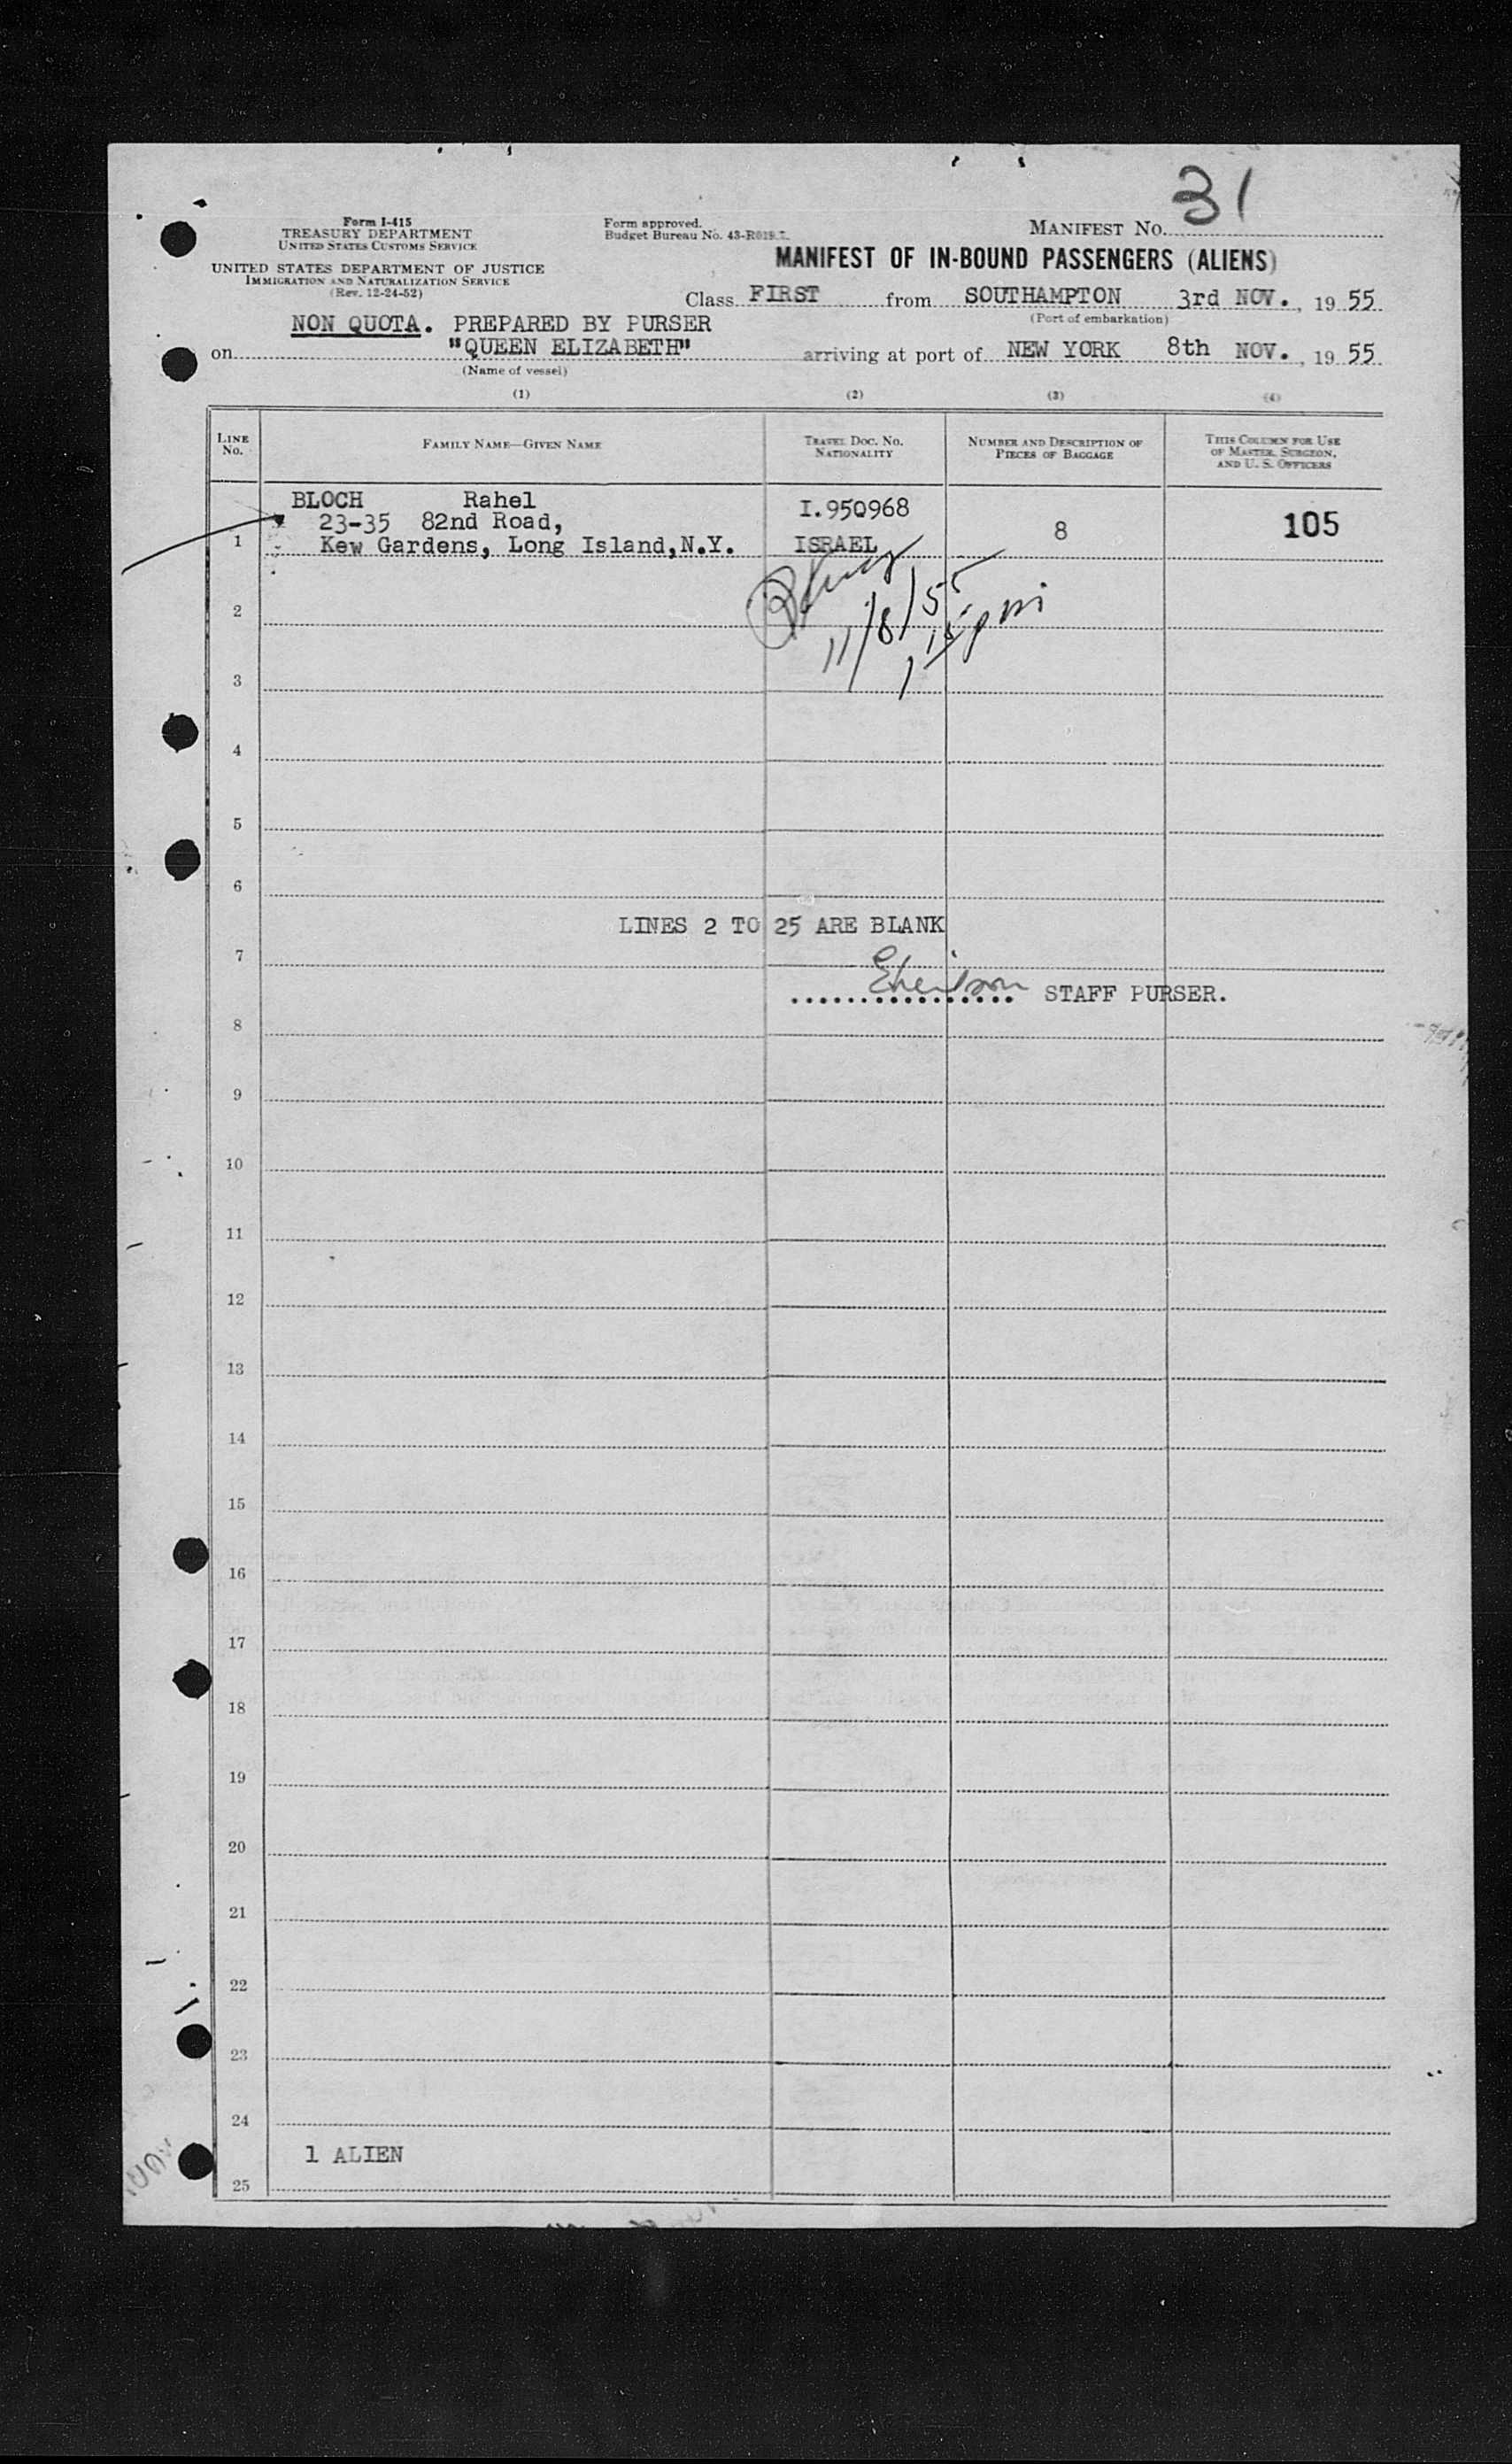 31
Form I-415
TREASURY DEPARTMENT
UNITED STATES CUSTOMS SERVICE
UNITED STATES DEPARTMENT OF JUSTICE
IMMIGRATION AND NATURALIZATION SERVICE
(Rev. 12-24-52)
Form approved.
Budget Bureau No.
MANIFEST No.
MANIFEST OF IN-BOUND PASSENGERS (ALIENS)
Class FIRST from SOUTHAMPTON 3rd NOV., 19 55
(Port of embarkation)
NON QUOTA. PREPARED BY PURSER
on "QUEEN ELIZABETH" arriving at port of NEW YORK 8th NOV., 19 55
(Name of vessel)
(1) (2) (3) (4)
LINE No. FAMILY NAME—GIVEN NAME TRAVEL DOC. NO. NATIONALITY NUMBER AND DESCRIPTION OF PIECES OF BAGGAGE THIS COLUMN FOR USE OF MASTER, SURGEON, AND U. S. OFFICERS
BLOCH Rahel I.950968
23-35 82nd Road, 8 105
1 Kew Gardens, Long Island,N.Y. ISRAEL
11/8/55
2
1 15 pm
3
4
5
6
LINES 2 TO 25 ARE BLANK
7
STAFF PURSER.
8
9
10
11
12
13
14
15
16
17
18
19
20
21
22
23
24
1 ALIEN
25